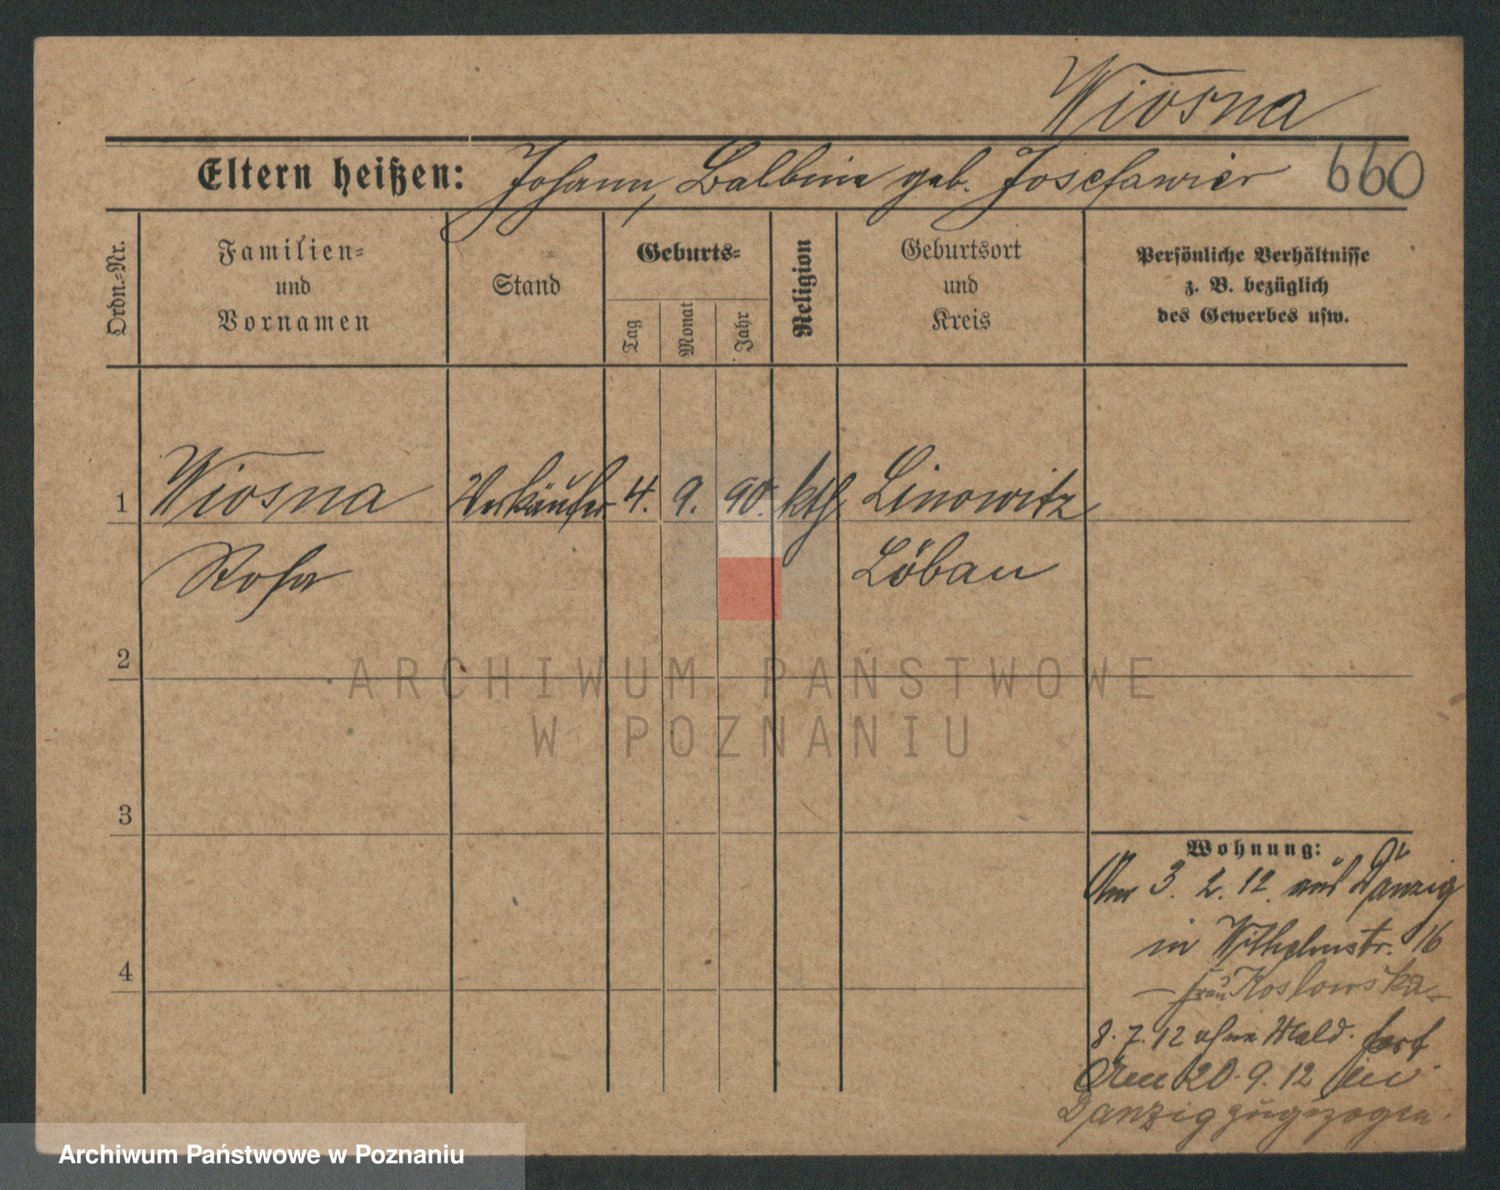 Wiosna
Eltern heißen: Johann, Balbine geb. Josefawier 660
Ordn.-Nr.
Familien-
und
Vornamen
Stand
Geburts-
Tag
Monat
Jahr
Religion
Geburtsort
und
Kreis
Persönliche Verhältnisse
z. B. bezüglich
des Gewerbes usw.
1 Wiosna Verkäufer 4. 9. 90. kth Linowitz
Rosa Löbau
2
3
4
Wohnung:
Am 3. 2. 12. aus Danzig
in Wilhelmstr. 16
– Frau Koslowska –
8. 7. 12 ohne Meld. fort
Am 20. 9. 12 in
Danzig zugezogen.
ARCHIWUM PAŃSTWOWE
W POZNANIU
Archiwum Państwowe w Poznaniu